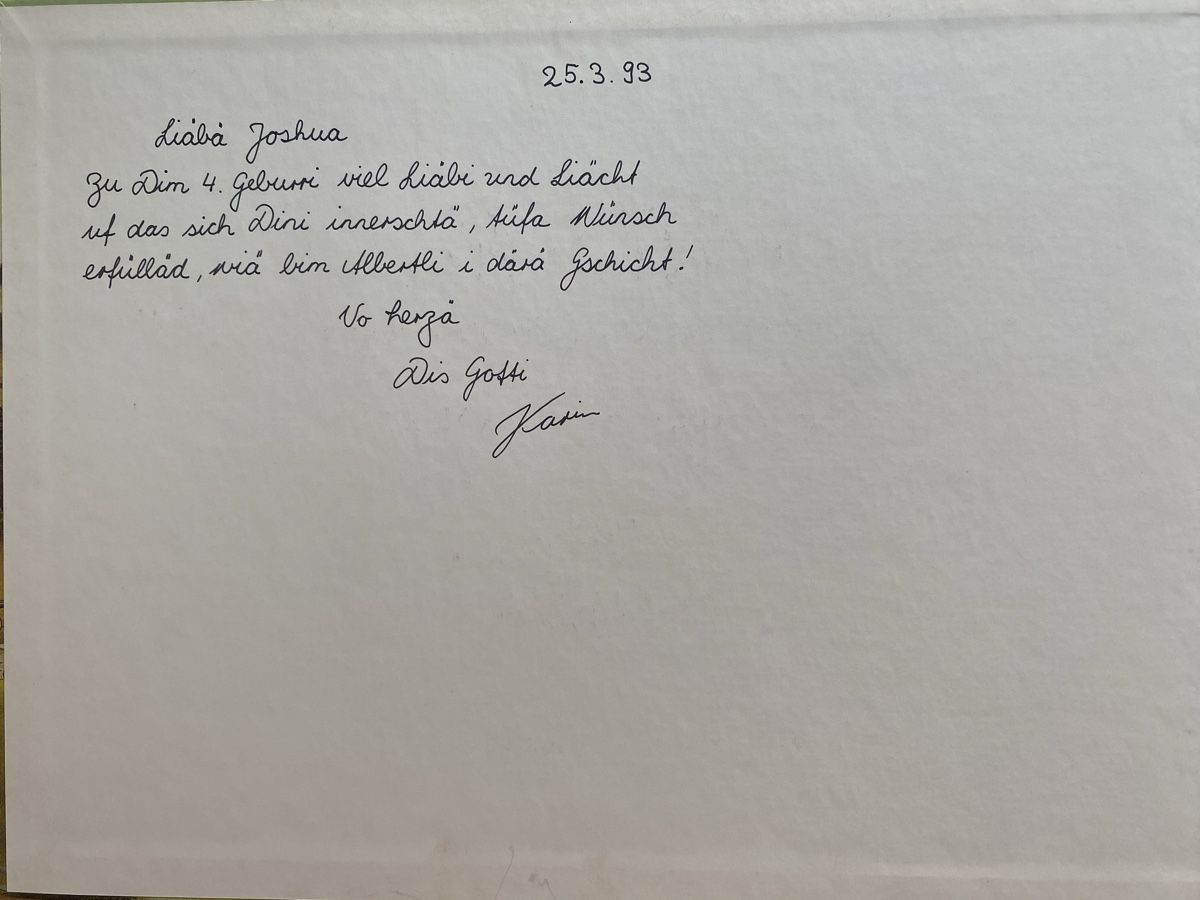 25.3.93
Liäbä Joshua
Zu Dim 4. Geburri viel Liäbi und Liächt
uf das sich Dini innerschtä, tüfa Wünsch
erfülläd, wiä bim Albertli i därä Gschicht!
Vo herzä
Dis Gotti
Karin